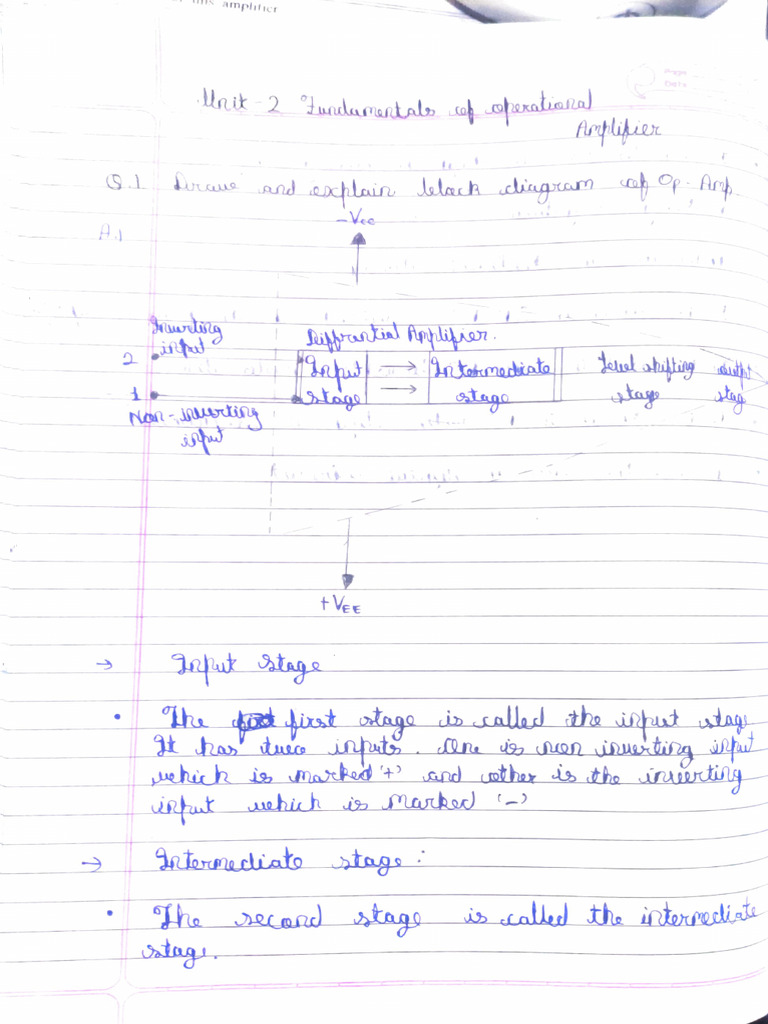 this amplifier
Unit-2 Fundamentals of operational
Amplifier
Q.1 Draw and explain block diagram of Op-Amp
-Vcc
A.1
Inverting
input
Diffrantial Amplifier.
2
Input
Intermediate
Level shifting
output
1
stage
stage
stage
stag
Non-inverting
input
+VEE
→ Input stage
• The first stage is called the input stage
It has two inputs. One is non inverting input
which is marked '+' and other is the inverting
input which is marked '-'
→ Intermediate stage:
• The second stage is called the intermediate
stage.